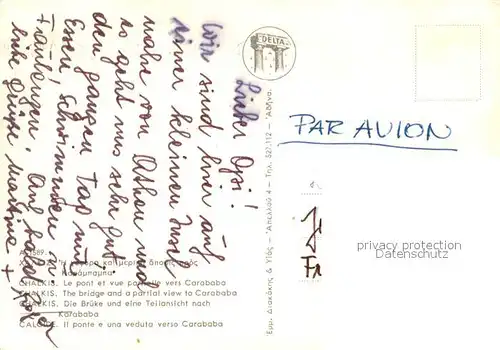 Lieber Opi!
Wir sind hier auf
einer kleinen Insel
nahe von Athen und
es geht uns sehr gut.
den ganzen Tag nur
Essen, schwimmen u.
faulenzen. Auf bald
liebe Grüße Martina +
DELTA
PAR AVION
privacy protection
Datenschutz
Εμμ. Διακάκης & Υιός - Απελλού 4 - Τηλ. 527.112 - Αθήναι
1589
CHALKIS. Le pont et vue partielle vers Carababa
CHALKIS. The bridge and a partial view to Carababa
CHALKIS. Die Brüke und eine Teilansicht nach
Karababa
CALCIDE. Il ponte e una veduta verso Carababa